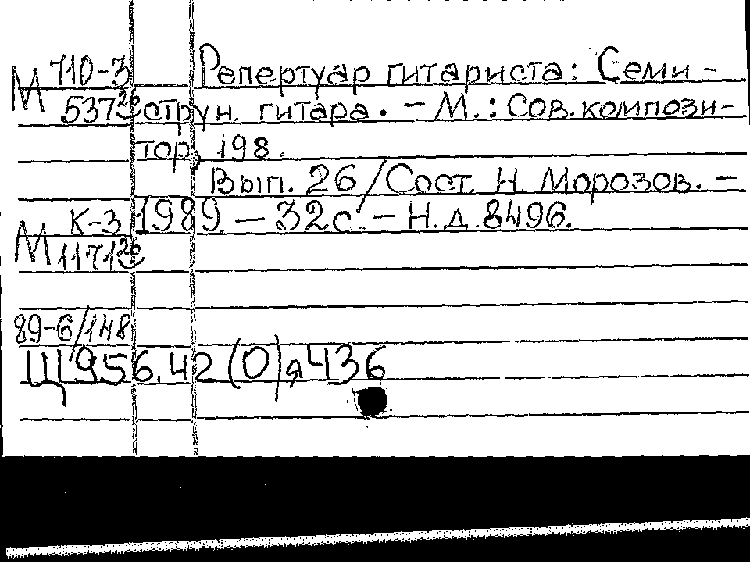 М 710-3 Репертуар гитариста: Семи-
537 струн. гитара. - М.: Сов. компози-
тор, 198 .
Вып. 26 / Сост. Н. Морозов. -
К-3 1989 - 32 с. - Н. д. 8496.
М 1171
89-6/148
Щ 956.42(0)я436